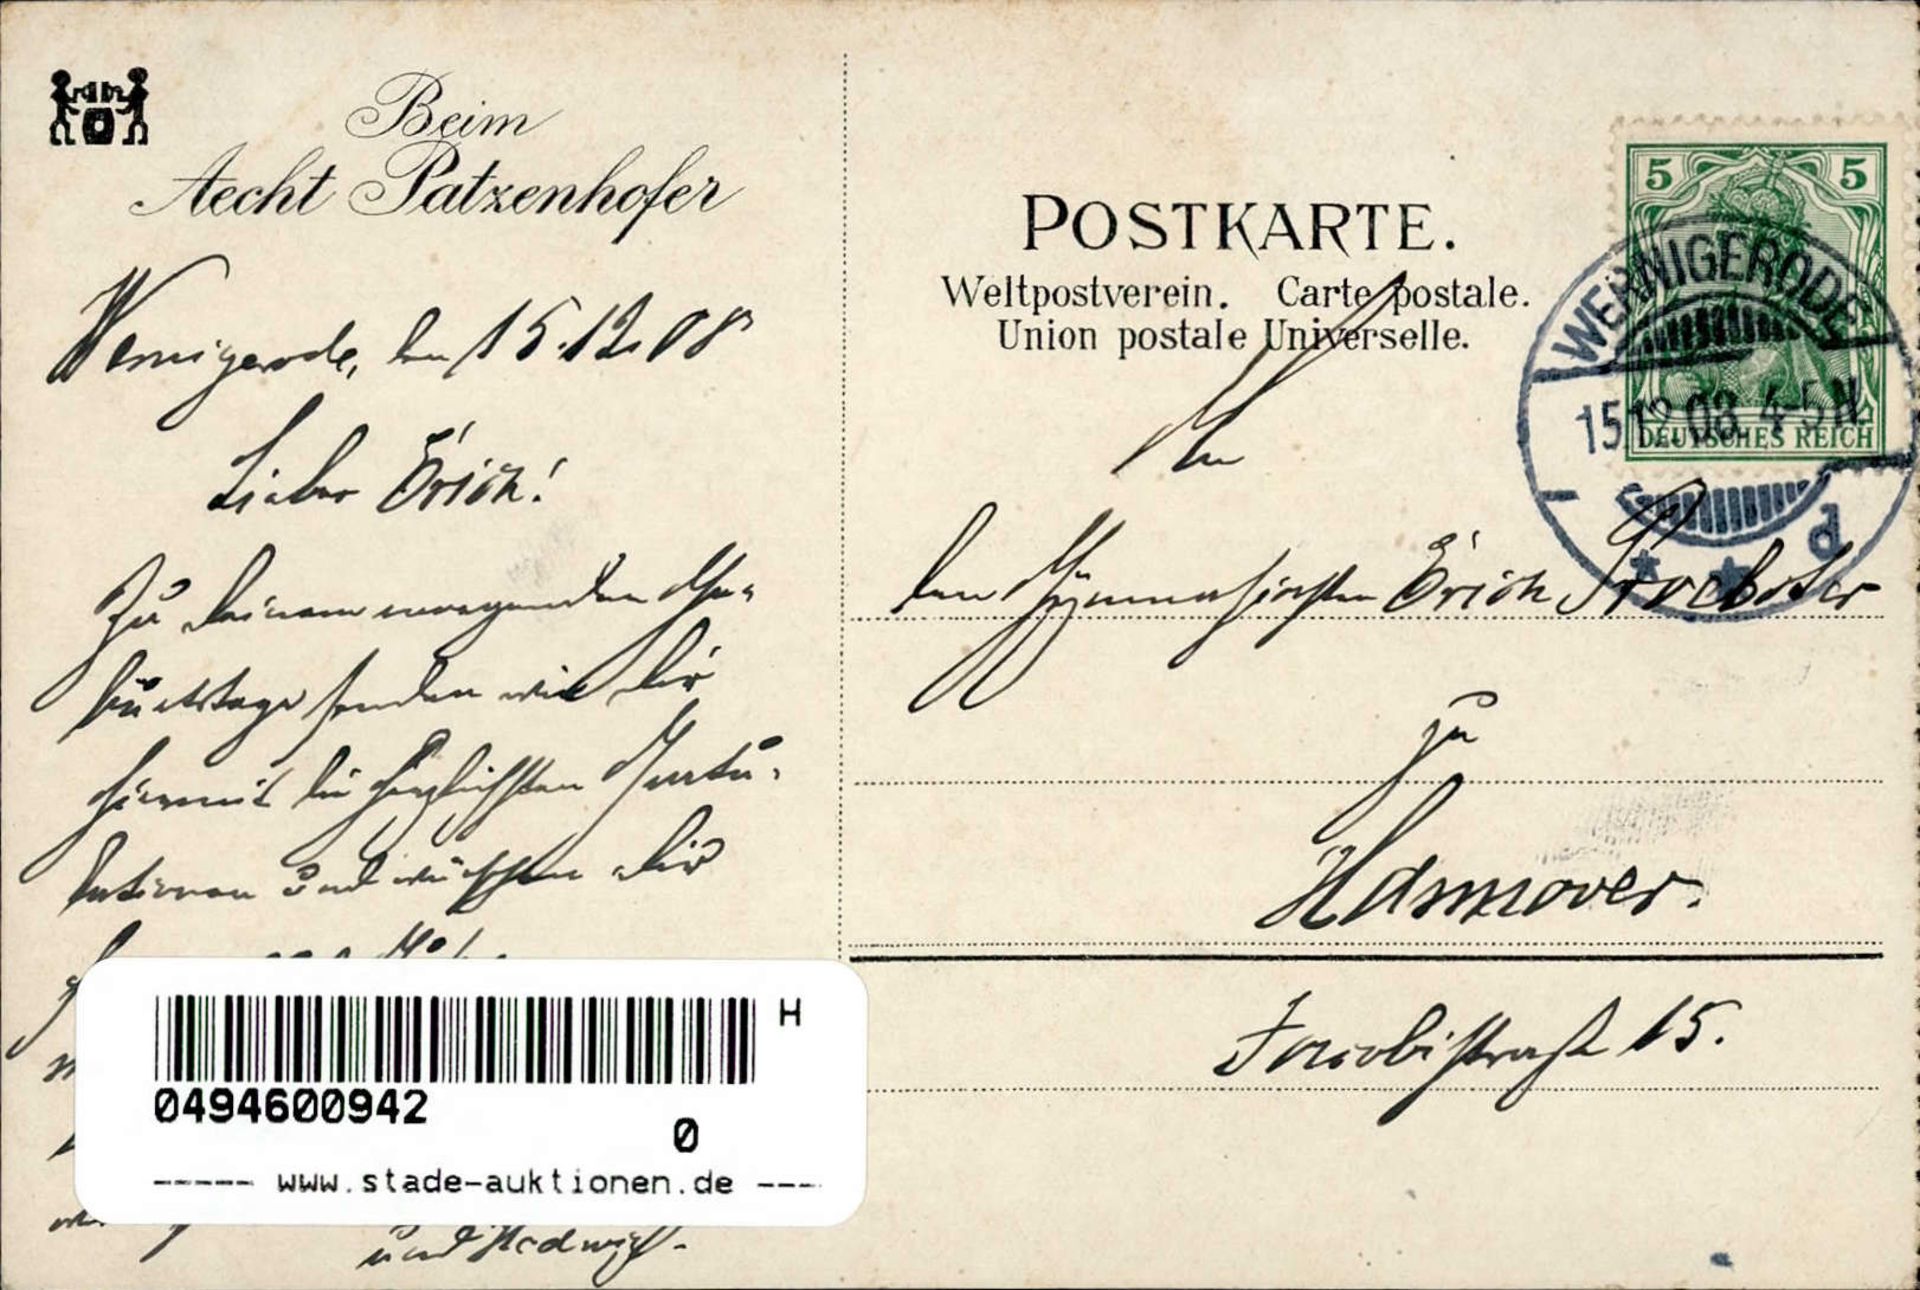 Beim
Aecht Patzenhofer
Wernigerode, den 15.12.08
Lieber Erich!
Zu Deinem morgenden Ge-
burtstage senden wir Dir
hiermit die herzlichsten Gratu-
lationen und wünschen Dir
und Hedwig.
H
0494600942
0
----- www.stade-auktionen.de ----
POSTKARTE.
Weltpostverein. Carte postale.
Union postale Universelle.
5 5
DEUTSCHES REICH
WERNIGERODE
15.12.08. 4-5 N
* * d
An
den Gymnasiasten Erich
zu
Hannover.
Jacobistraße 15.